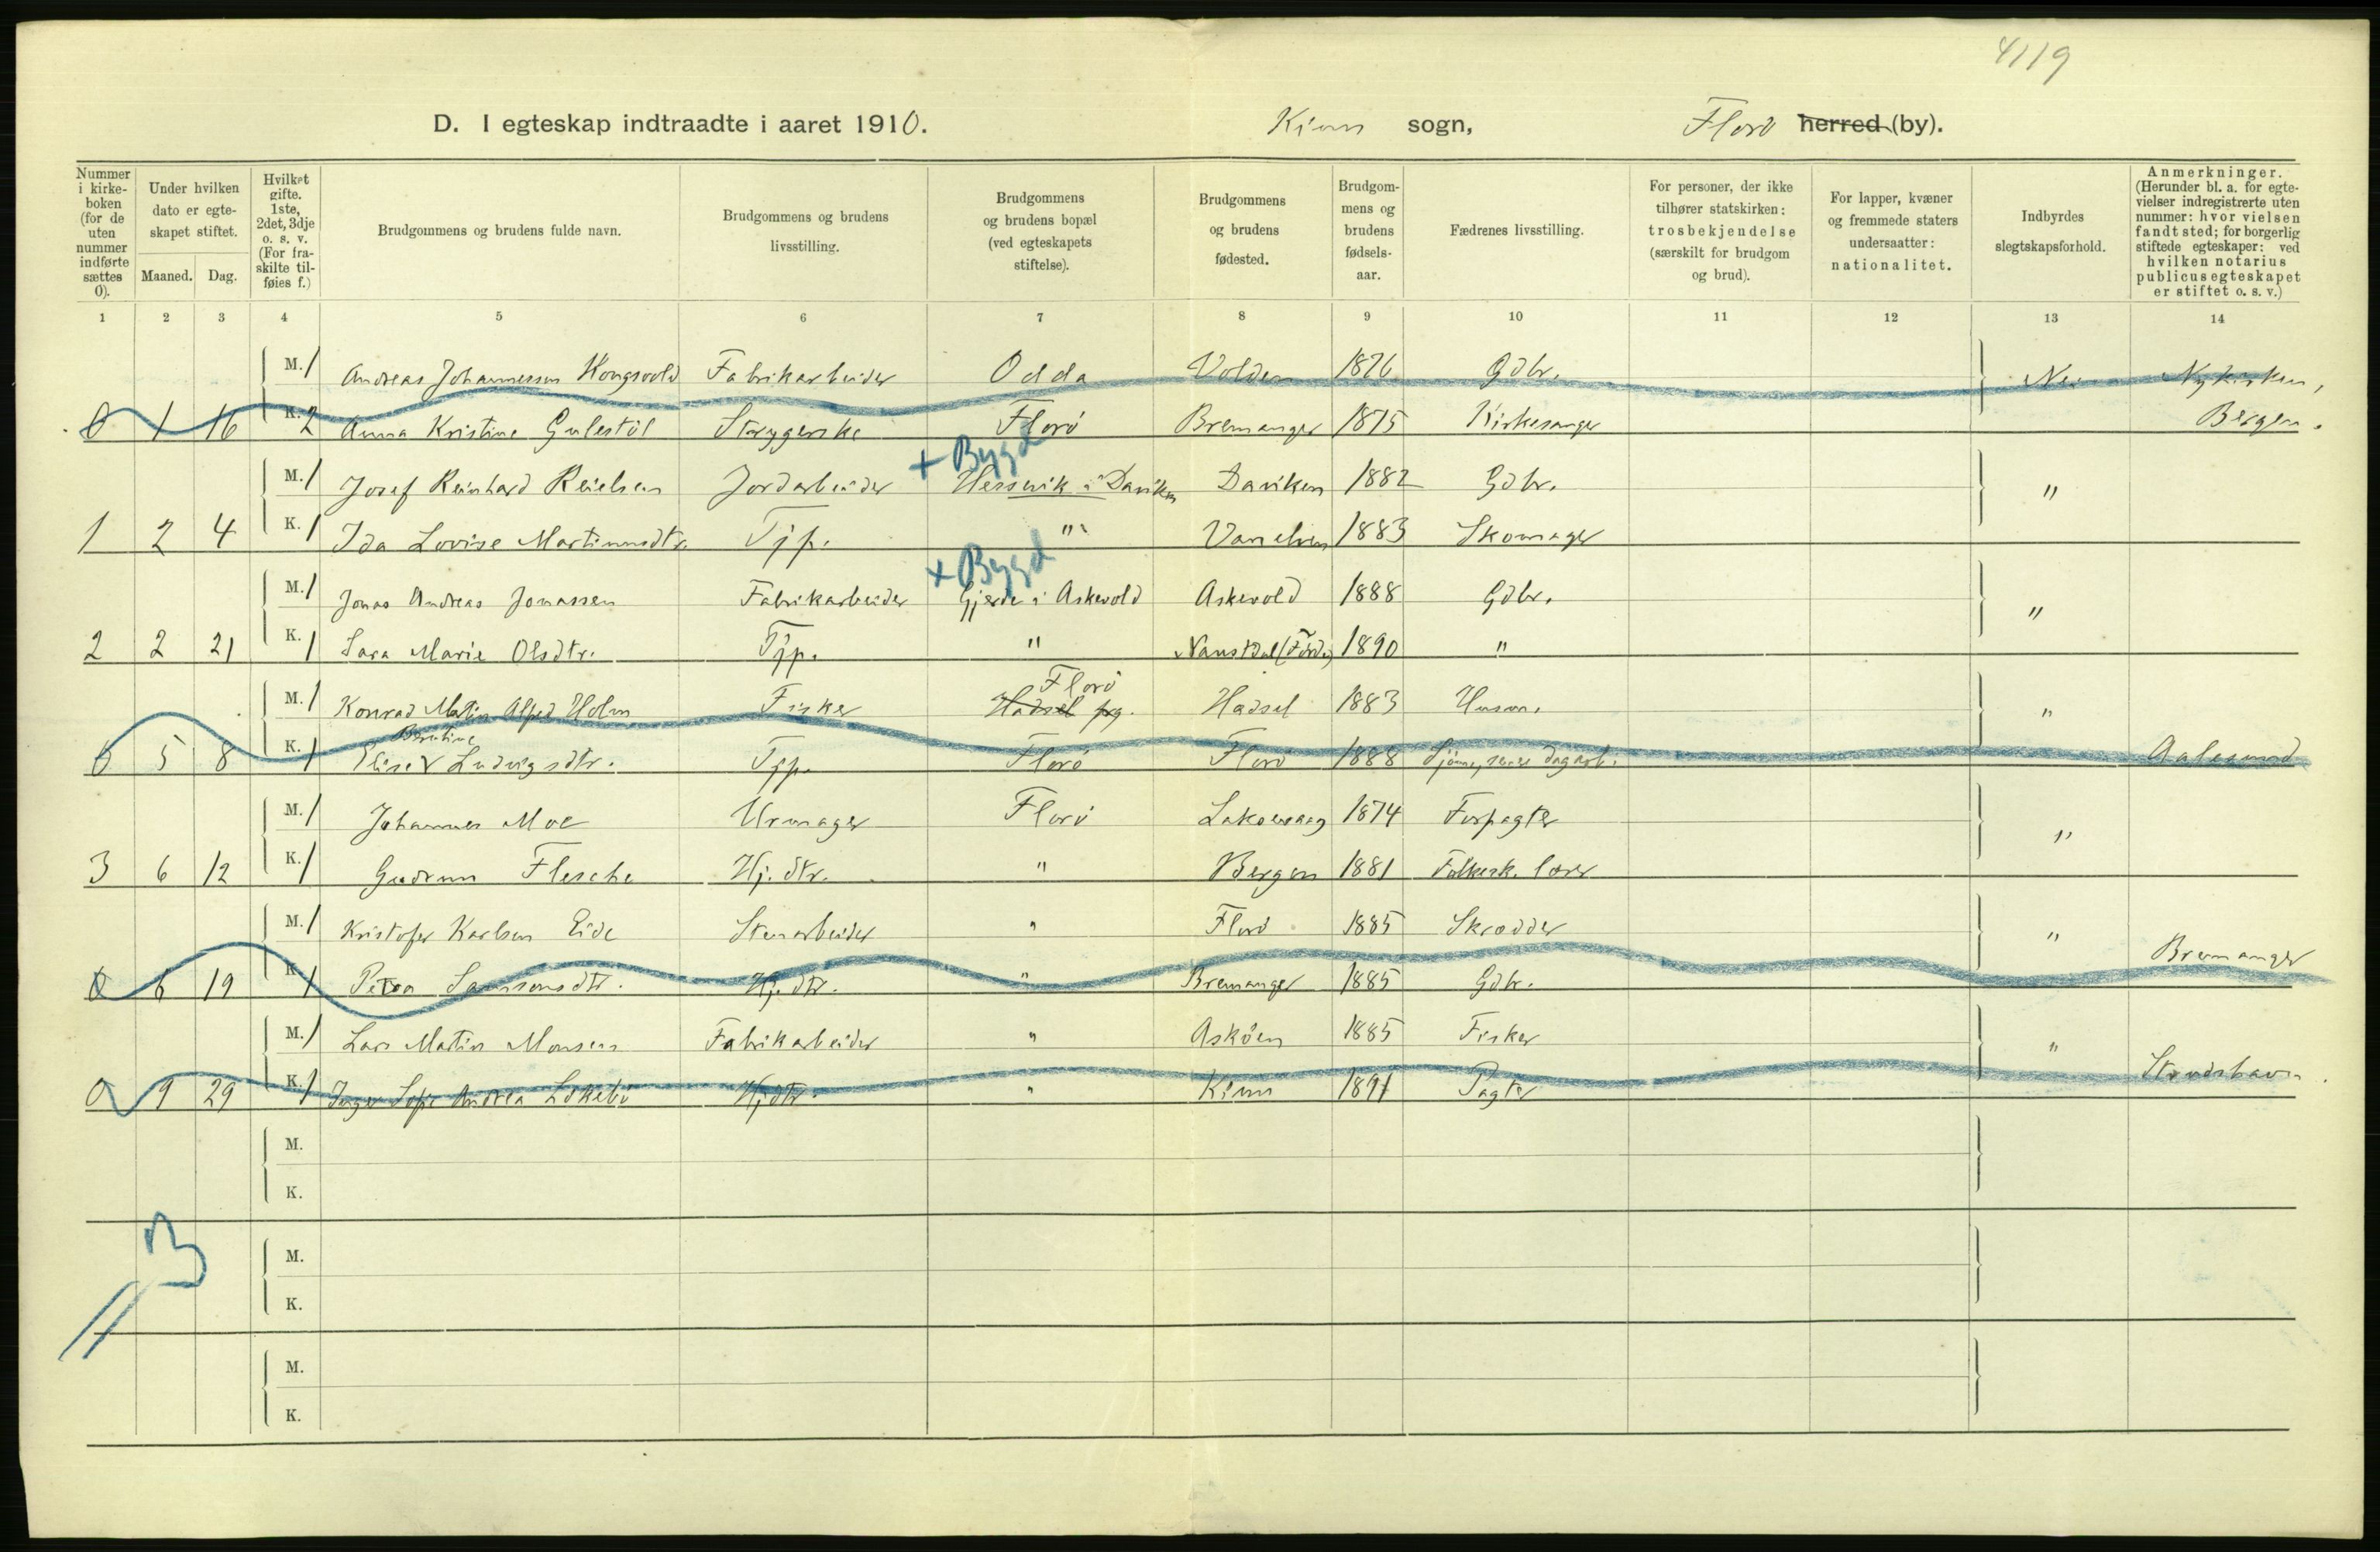 4119
D. I egteskap indtraadte i aaret 1910. Kinn sogn, Florö herred (by).
Nummer i kirkeboken (for de uten nummer indførte sættes 0).
Under hvilken dato er egteskapet stiftet.
Maaned. Dag.
Hvilket gifte. 1ste, 2det, 3dje o. s. v. (For fraskilte tilføies f.)
Brudgommens og brudens fulde navn.
Brudgommens og brudens livsstilling.
Brudgommens og brudens bopæl (ved egteskapets stiftelse).
Brudgommens og brudens fødested.
Brudgommens og brudens fødselsaar.
Fædrenes livsstilling.
For personer, der ikke tilhører statskirken: trosbekjendelse (særskilt for brudgom og brud).
For lapper, kvæner og fremmede staters undersaatter: nationalitet.
Indbyrdes slegtskapsforhold.
Anmerkninger. (Herunder bl. a. for egtevielser indregistrerte uten nummer: hvor vielsen fandt sted; for borgerlig stiftede egteskaper: ved hvilken notarius publicus egteskapet er stiftet o. s. v.)
1 2 3 4 5 6 7 8 9 10 11 12 13 14
M. 1 Andreas Johannessen Kongsvold Fabrikarbeider Odda Volden 1876 Gdbr. Nei Nykirken,
0 1 16 K. 2 Anna Kristine Gulestöl Strygerske Florö Bremanger 1875 Kirkesanger Bergen.
+ Bygd
M. 1 Josef Reinhard Reielsen Jordarbeider Hessevik i Daviken Daviken 1882 Gdbr. "
1 2 4 K. 1 Ida Lovise Martinusdtr. Tjp. " Vanelven 1883 Skomager
+ Bygd
M. 1 Jonas Andreas Jonassen Fabrikarbeider Gjerde i Askevold Askevold 1888 Gdbr. "
2 2 21 K. 1 Sara Marie Olsdtr. Tjp. " Naustdal (Förde) 1890 "
Florö
M. 1 Konrad Martin Alfred Holm Fisker Hadsel pg. Hadsel 1883 Husm. "
Berntine
0 5 8 K. 1 Elise Ludvigsdtr. Tjp. Florö Florö 1888 Sjöm., senere dagarb. Aalesund
M. 1 Johannes Moe Urmager Florö Laksevaag 1874 Forpagter "
3 6 12 K. 1 Gudrun Flesche Hj. dtr. " Bergen 1881 Folkesk. lærer
M. 1 Kristofer Karlsen Eide Stenarbeider " Florö 1885 Skrædder "
0 6 19 K. 1 Petra Samsonsdtr. Hj. dtr. " Bremanger 1885 Gdbr. Bremanger
M. 1 Lars Martin Monsen Fabrikarbeider " Asköen 1885 Fisker "
0 9 29 K. 1 Inger Sofie Andrea Lökebö Hj. dtr. " Kinn 1891 Pagter
M.
K.
M.
K.
M.
K.
3